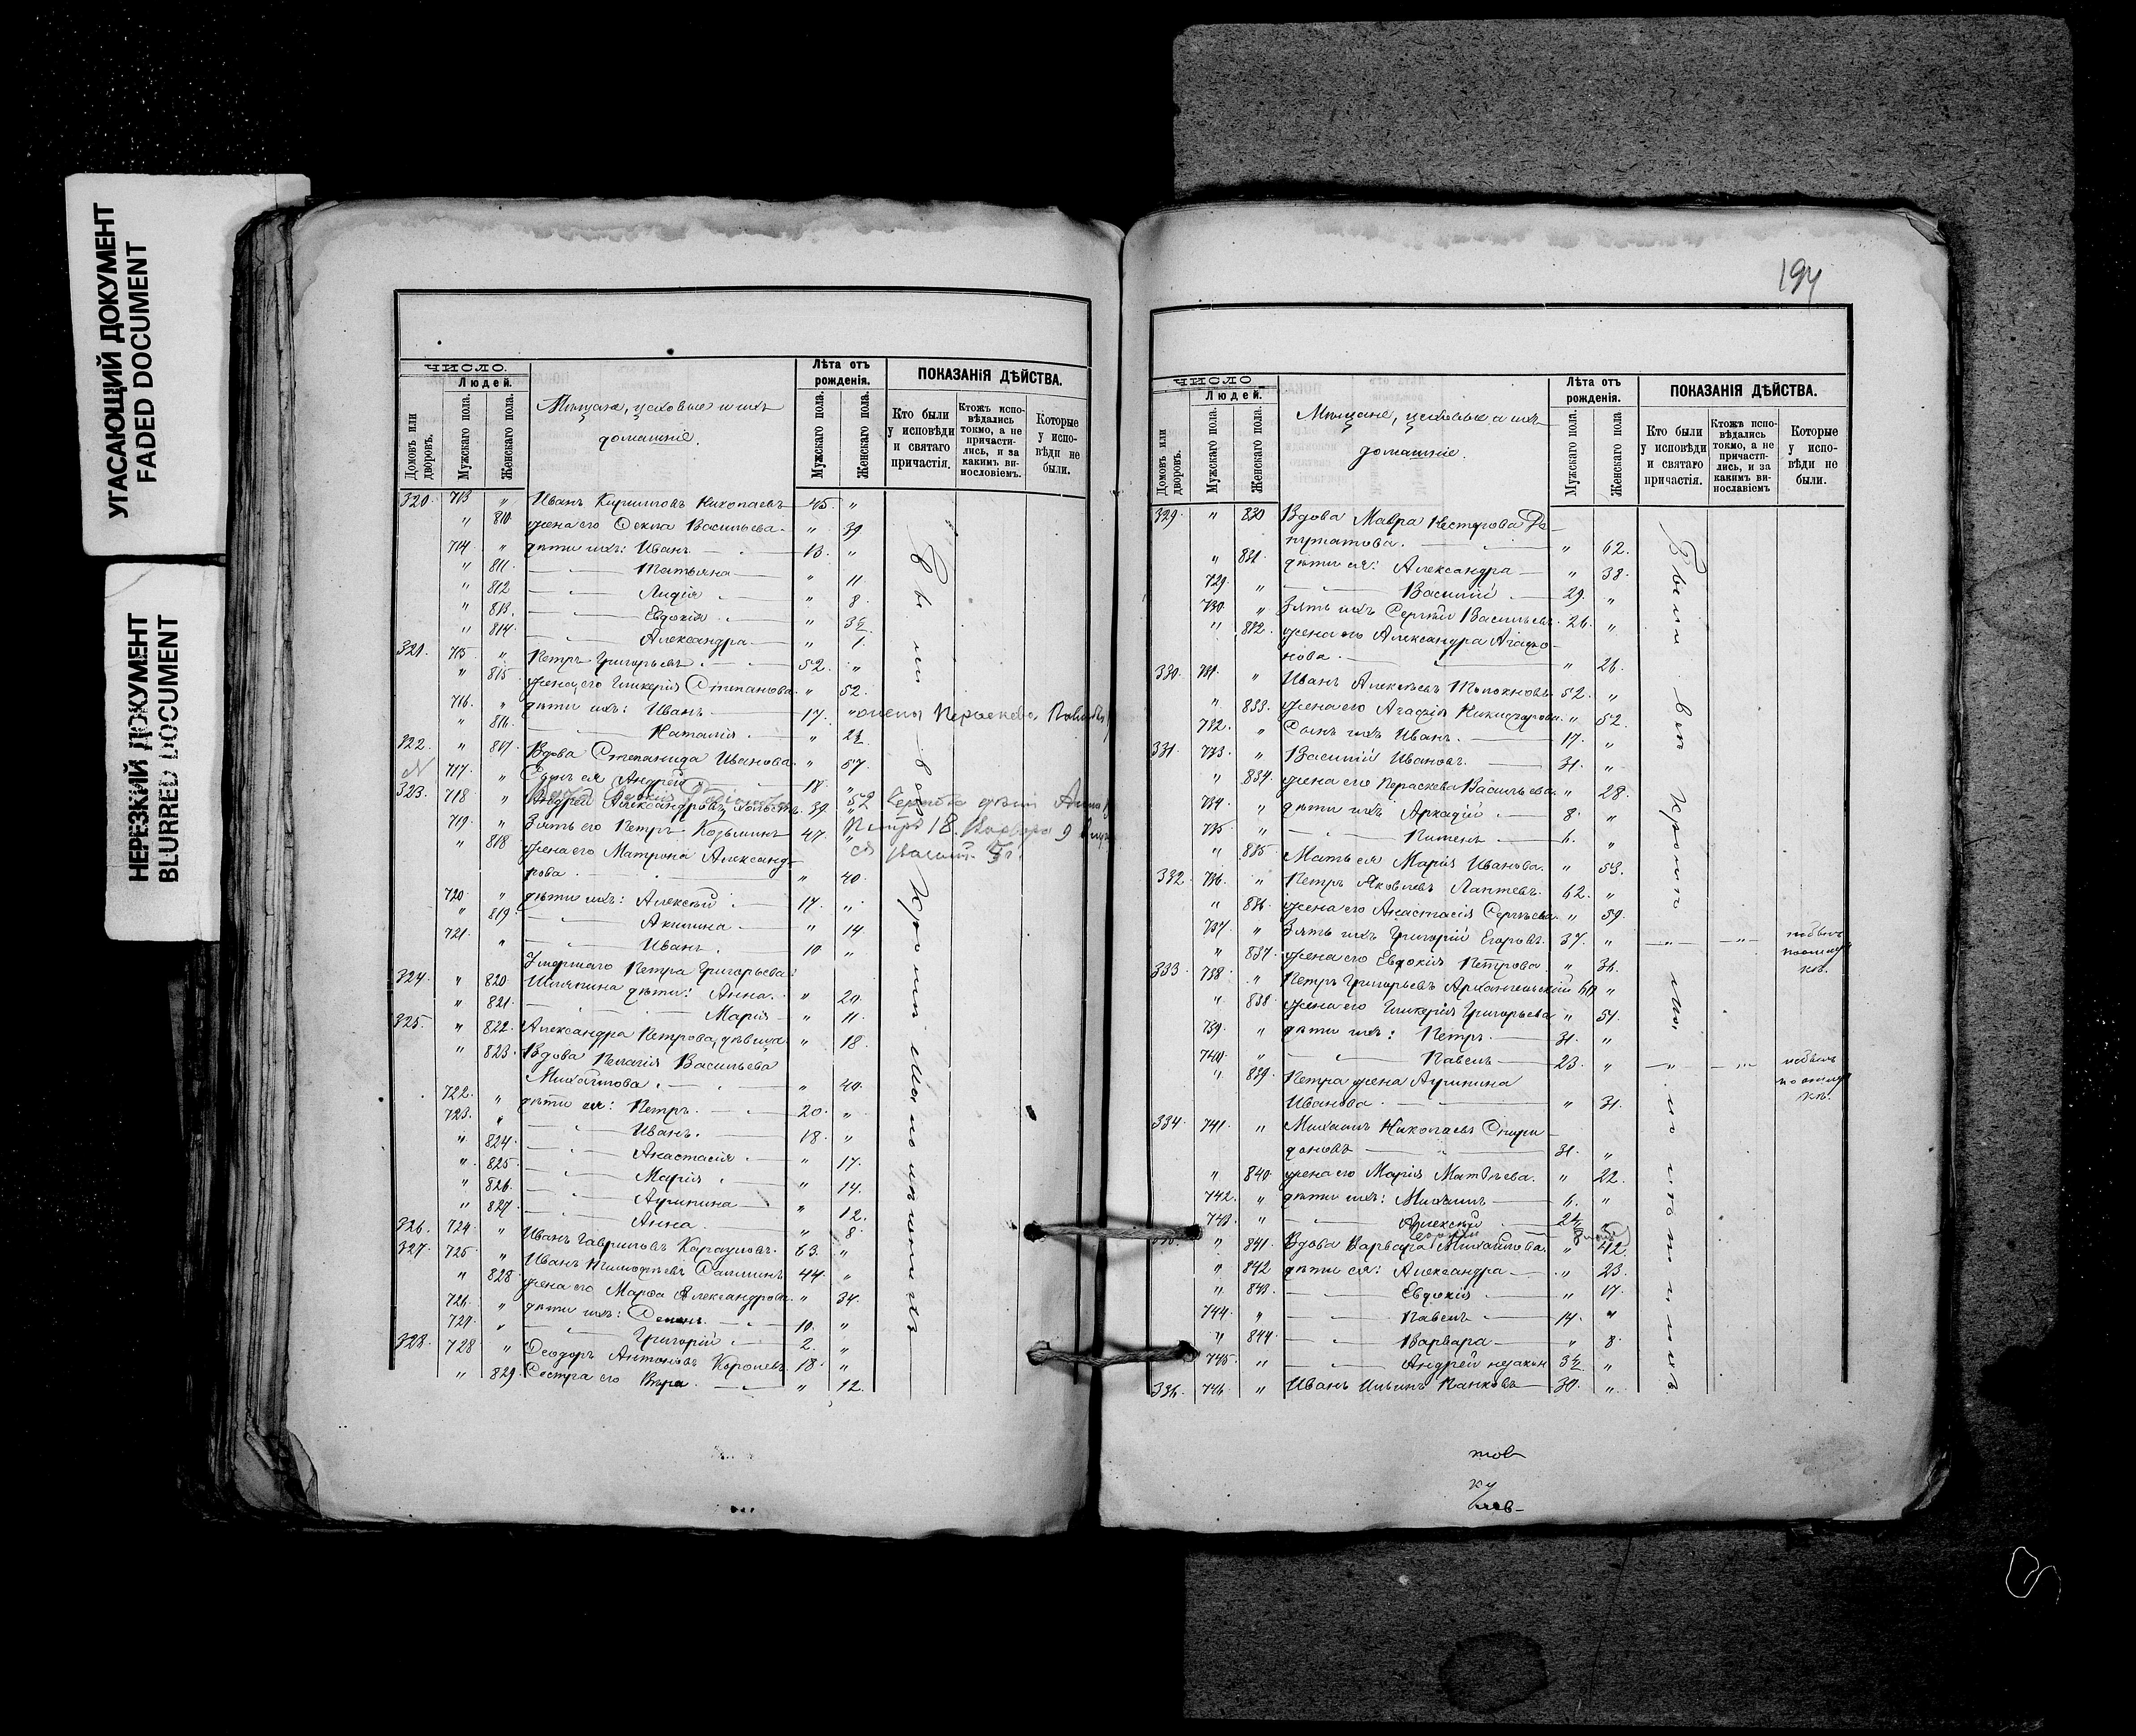 УГАСАЮЩИЙ ДОКУМЕНТ
FADED DOCUMENT
НЕРЕЗКИЙ ДОКУМЕНТ
BLURRED DOCUMENT
ЧИСЛО.
Людей.
Домовъ или дворовъ.
Мужскаго пола.
Женскаго пола.
Мѣщане, цеховые и ихъ
домашніе.
Лѣта отъ рожденія.
Мужскаго пола.
Женскаго пола.
ПОКАЗАНІЯ ДѢЙСТВА.
Кто были у исповѣди и святаго причастія.
Ктожъ исповѣдались токмо, а не причастились, и за какимъ винословіемъ.
Которые у исповѣди не были.
320. 713 " Иванъ Кирилловъ Николаевъ 45. "
" 810 жена его Ѳекла Васильева " 39
714 " дѣти ихъ: Иванъ 13. "
" 811 Татьяна " 11.
" 812 Лидія " 8.
" 813. Евдокія " 3½
" 814. Александра " 1.
321. 715 " Петръ Григорьевъ 52. "
" 815 жена его Гликерія Степанова " 52.
716. " дѣти ихъ: Иванъ 17. "
" 816. Наталія " 2½
322. " 817. Вдова Степанида Иванова " 57.
717. " Сынъ ея Андрей 18. "
323. 718 " Андрей Александровъ 39. 52
719. " Зять его Петръ Козьминъ 47. "
" 818 жена его Матрона Александ-
рова " 40.
720 " дѣти ихъ: Алексѣй 17. "
" 819. Акилина " 14
721. " Иванъ 10 "
Умершаго Петра Григорьева
324. " 820 Шляпина дѣти: Анна " 20.
" 821. Марія " 11.
325. " 822. Александра Петрова, дѣвица " 18.
" 823. Вдова Пелагія Васильева
Михайлова " 40.
722. " дѣти ея: Петръ 20. "
723. " Иванъ 18. "
" 824. Анастасія " 17.
" 825. Марія " 14.
" 826. Агрипина " 12.
" 827. Анна " 8
326. 724. " Иванъ Гавриловъ Карауловъ 63. "
327. 725. " Иванъ Тимофѣевъ 44. "
" 828. жена его Марѳа Александрова " 34.
726. " дѣти ихъ: Семенъ 10. "
727. " Григорій 2. "
328. 728 " Ѳеодоръ Антоновъ Королевъ 18. "
" 829. Сестра его Вѣра " 12.
194
ЧИСЛО
Людей.
Домовъ или дворовъ.
Мужскаго пола.
Женскаго пола.
Мѣщане, цеховые и ихъ
домашніе.
Лѣта отъ рожденія.
Мужскаго пола.
Женскаго пола
ПОКАЗАНІЯ ДѢЙСТВА.
Кто были у исповѣди и святаго причастія.
Ктожъ исповѣдались токмо, а не причастились, и за какимъ винословіемъ
Которые у исповѣди не были.
329. " 830 Вдова Мавра Нестерова Де-
путатова " 62.
" 831. дѣти ея: Александра " 38.
729. " Василій 29. "
730. " Зять ихъ Сергѣй Васильевъ 26. "
" 832. жена его Александра Агафо-
нова " 26.
330. 731. " Иванъ Алексѣевъ Толокновъ 52. "
" 833. жена его Агафія Никифорова " 52.
732. " Сынъ ихъ Иванъ 17. "
331. 733. " Василій Ивановъ 31. "
" 834. жена его Параскева Васильева " 28.
734. " дѣти ихъ Аркадій 8. "
735. " Пименъ 6. "
" 835. Мать ея Марія Иванова " 53.
332. 736. " Петръ Яковлевъ Лаптевъ 62. "
" 836. жена его Анастасія Сергѣева " 59.
737. " Зять ихъ Григорій Егоровъ 37. "
" 837. жена его Евдокія Петрова " 36.
333. 738. " Петръ Григорьевъ Архангельскій 60 "
" 838. жена его Гликерія Григорьева " 51.
739. " дѣти ихъ: Петръ 31. "
740. " Павелъ 23. "
" 839. Петра жена Агрипина
Иванова " 31.
334. 741. " Михаилъ Николаевъ Спири-
доновъ 31. "
" 840. жена его Марія Матвѣева " 22.
742. " дѣти ихъ: Михаилъ 6. "
743. " Алексѣй 2½ "
" 841. Вдова Варвара Михайлова " 42.
" 842. дѣти ея: Александра " 23.
" 843. Евдокія " 17.
744. " Павелъ 14. "
" 844. Варвара " 8.
745. " Андрей незакон 3½ "
336. 746. " Иванъ Ильинъ Панковъ 30. "